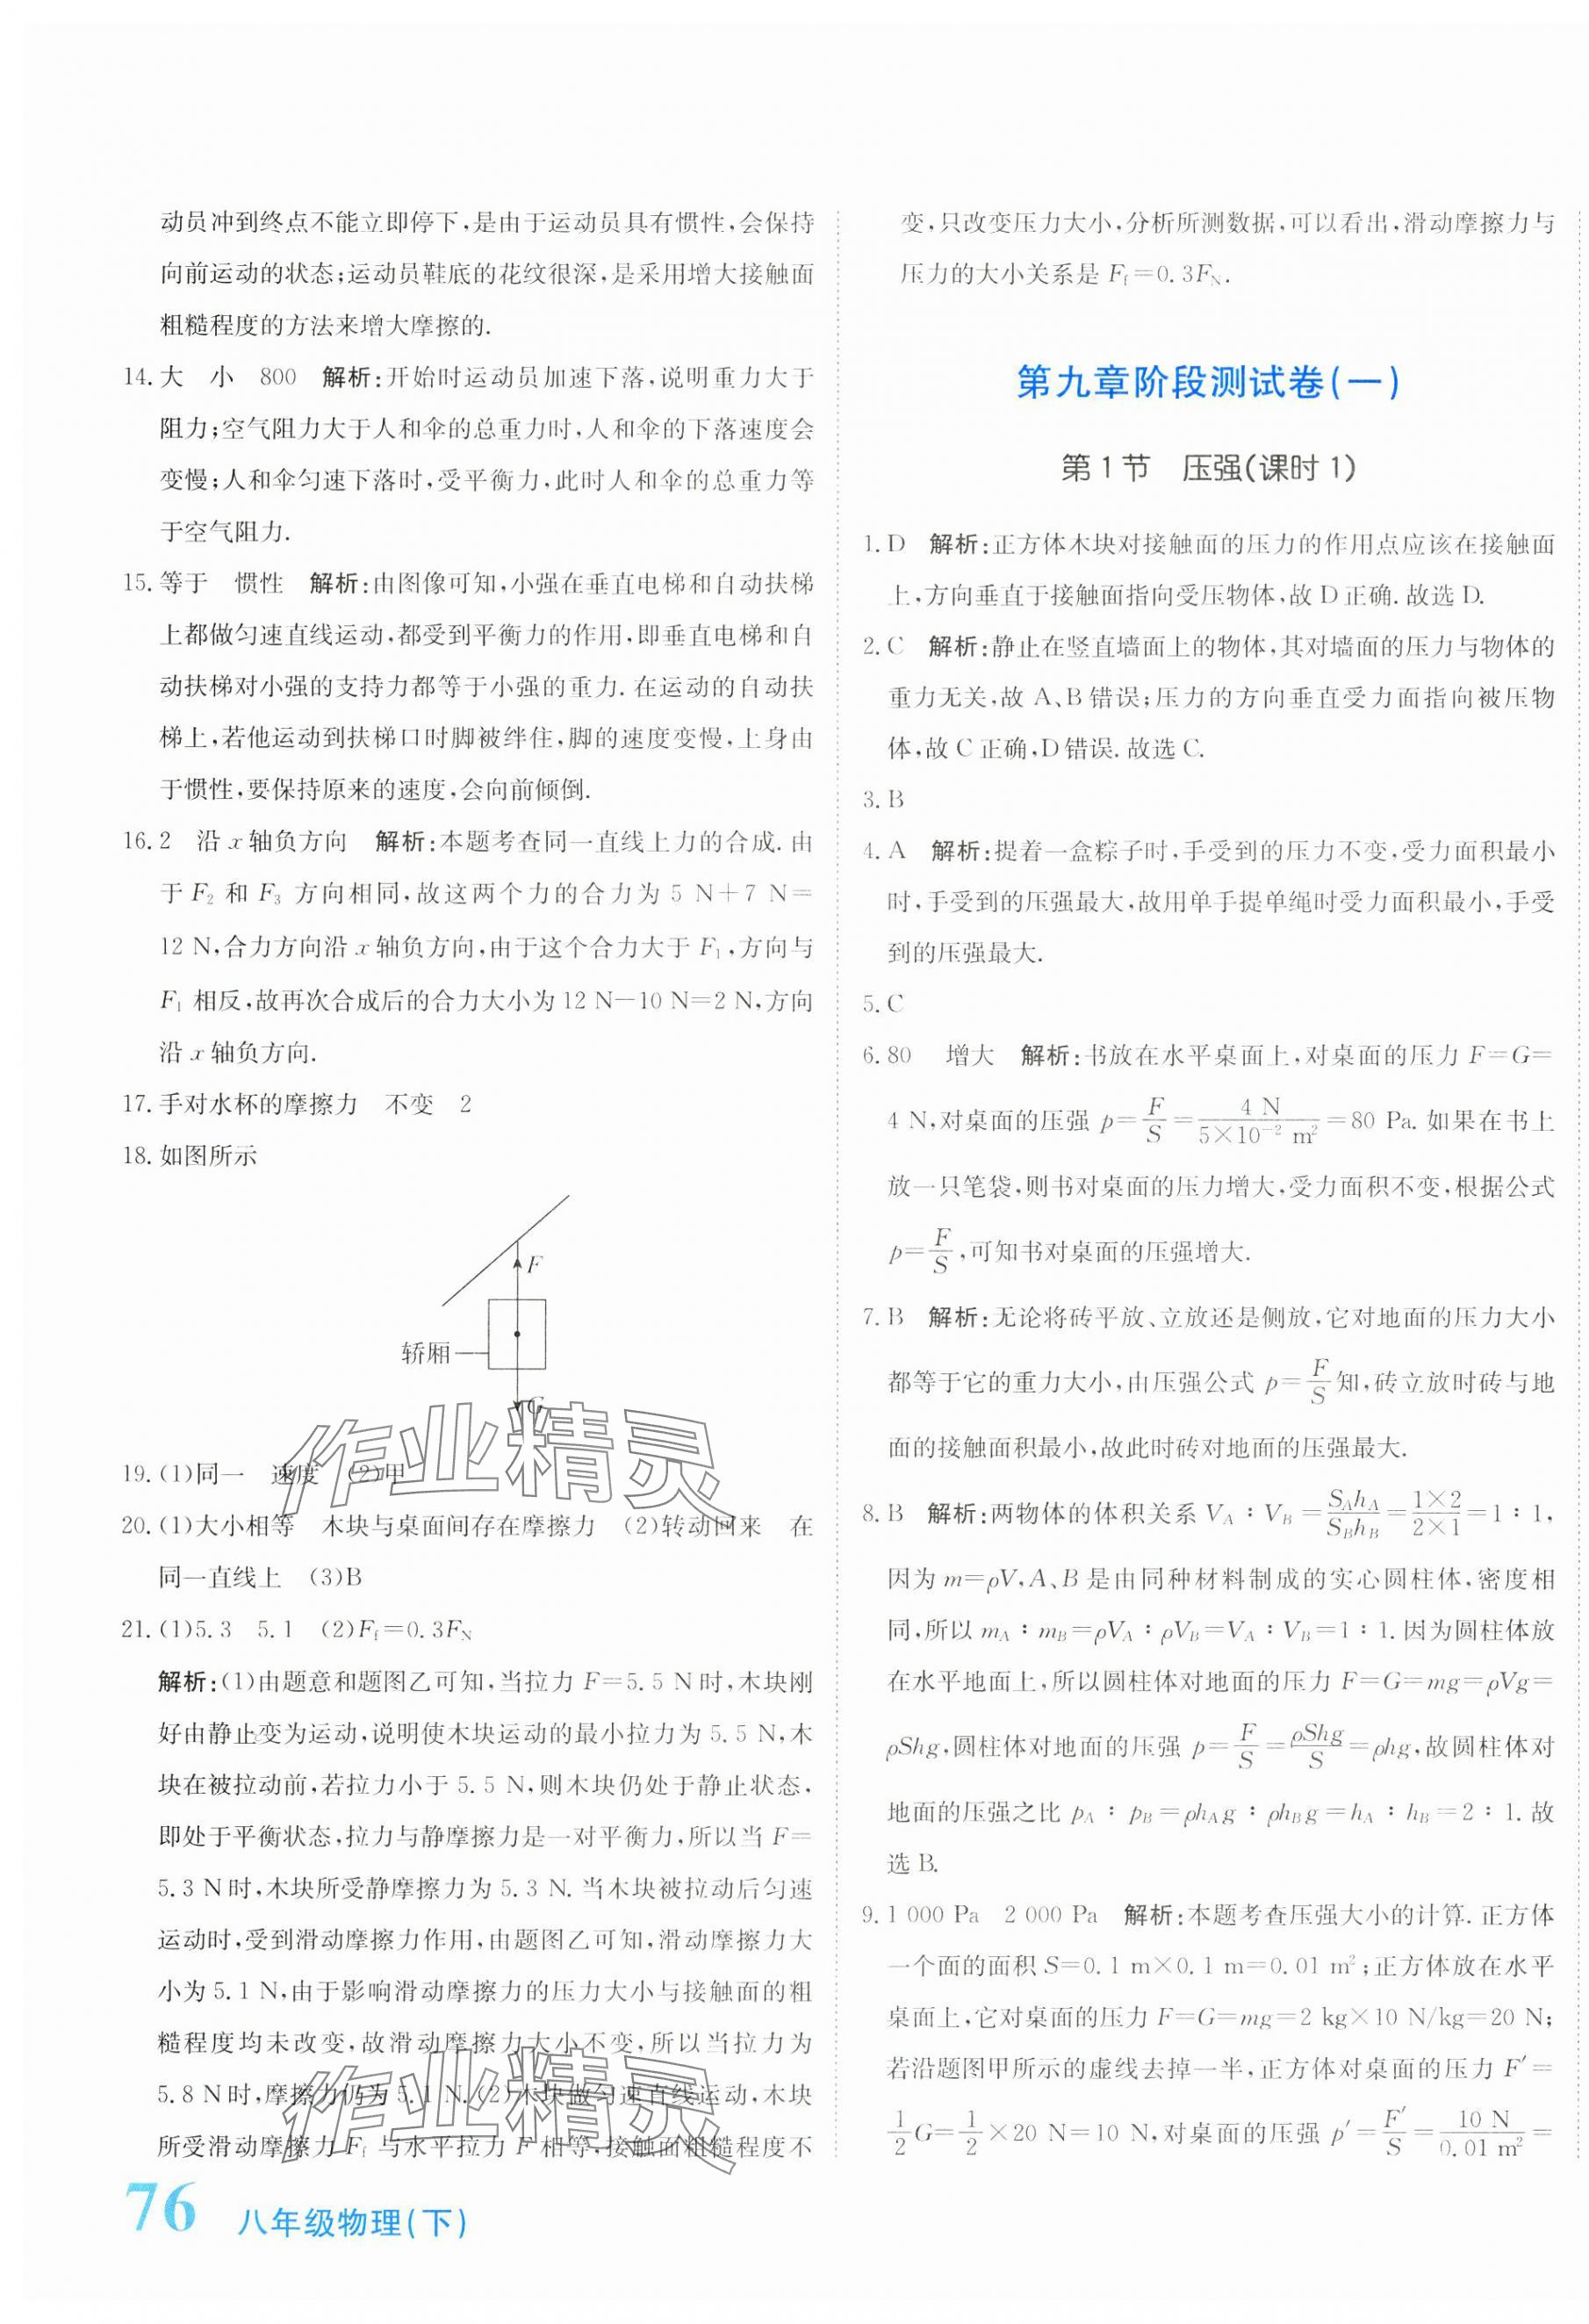 动员冲到终点不能立即停下,是由于运动员具有惯性,会保持
向前运动的状态;运动员鞋底的花纹很深,是采用增大接触面
粗糙程度的方法来增大摩擦的.
14.大　小　800　解析:开始时运动员加速下落,说明重力大于
阻力;空气阻力大于人和伞的总重力时,人和伞的下落速度会
变慢;人和伞匀速下落时,受平衡力,此时人和伞的总重力等
于空气阻力.
15.等于　惯性　解析:由图像可知,小强在垂直电梯和自动扶梯
上都做匀速直线运动,都受到平衡力的作用,即垂直电梯和自
动扶梯对小强的支持力都等于小强的重力.在运动的自动扶
梯上,若他运动到扶梯口时脚被绊住,脚的速度变慢,上身由
于惯性,要保持原来的速度,会向前倾倒.
16.2　沿 x 轴负方向　解析:本题考查同一直线上力的合成.由
于 F₂ 和 F₃ 方向相同,故这两个力的合力为 5 N+7 N=
12 N,合力方向沿 x 轴负方向,由于这个合力大于 F₁,方向与
F₁ 相反,故再次合成后的合力大小为 12 N−10 N=2 N,方向
沿 x 轴负方向.
17.手对水杯的摩擦力　不变　2
18.如图所示
F
轿厢
G
19.(1)同一　速度　(2)甲
20.(1)大小相等　木块与桌面间存在摩擦力　(2)转动回来　在
同一直线上　(3)B
21.(1)5.3　5.1　(2)Ff=0.3FN
解析:(1)由题意和题图乙可知,当拉力 F=5.5 N时,木块刚
好由静止变为运动,说明使木块运动的最小拉力为 5.5 N,木
块在被拉动前,若拉力小于 5.5 N,则木块仍处于静止状态,
即处于平衡状态,拉力与静摩擦力是一对平衡力,所以当 F=
5.3 N时,木块所受静摩擦力为 5.3 N.当木块被拉动后匀速
运动时,受到滑动摩擦力作用,由题图乙可知,滑动摩擦力大
小为 5.1 N,由于影响滑动摩擦力的压力大小与接触面的粗
糙程度均未改变,故滑动摩擦力大小不变,所以当拉力为
5.8 N时,摩擦力仍为 5.1 N.(2)木块做匀速直线运动,木块
所受滑动摩擦力 Ff 与水平拉力 F 相等,接触面粗糙程度不
76 八年级物理(下)
变,只改变压力大小,分析所测数据,可以看出,滑动摩擦力与
压力的大小关系是 Ff=0.3FN.
第九章阶段测试卷(一)
第1节　压强(课时1)
1.D　解析:正方体木块对接触面的压力的作用点应该在接触面
上,方向垂直于接触面指向受压物体,故D正确.故选D.
2.C　解析:静止在竖直墙面上的物体,其对墙面的压力与物体的
重力无关,故 A、B错误;压力的方向垂直受力面指向被压物
体,故C正确,D错误.故选C.
3.B
4.A　解析:提着一盒粽子时,手受到的压力不变,受力面积最小
时,手受到的压强最大,故用单手提单绳时受力面积最小,手受
到的压强最大.
5.C
6.80　增大　解析:书放在水平桌面上,对桌面的压力 F=G=
4 N,对桌面的压强 p=F/S=4 N/(5×10⁻² m²)=80 Pa.如果在书上
放一只笔袋,则书对桌面的压力增大,受力面积不变,根据公式
p=F/S,可知书对桌面的压强增大.
7.B　解析:无论将砖平放、立放还是侧放,它对地面的压力大小
都等于它的重力大小,由压强公式 p=F/S知,砖立放时砖与地
面的接触面积最小,故此时砖对地面的压强最大.
8.B　解析:两物体的体积关系 VA∶VB=SAhA/SBhB=1×2/2×1=1∶1,
因为 m=ρV,A、B是由同种材料制成的实心圆柱体,密度相
同,所以 mA∶mB=ρVA∶ρVB=VA∶VB=1∶1.因为圆柱体放
在水平地面上,所以圆柱体对地面的压力 F=G=mg=ρVg=
ρShg,圆柱体对地面的压强 p=F/S=ρShg/S=ρhg,故圆柱体对
地面的压强之比 pA∶pB=ρhAg∶ρhBg=hA∶hB=2∶1.故
选B.
9.1 000 Pa　2 000 Pa　解析:本题考查压强大小的计算.正方体
一个面的面积 S=0.1 m×0.1 m=0.01 m²;正方体放在水平
桌面上,它对桌面的压力 F=G=mg=2 kg×10 N/kg=20 N;
若沿题图甲所示的虚线去掉一半,正方体对桌面的压力 F′=
1/2G=1/2×20 N=10 N,对桌面的压强 p′=F′/S=10 N/0.01 m²=
作业精灵
作业精灵